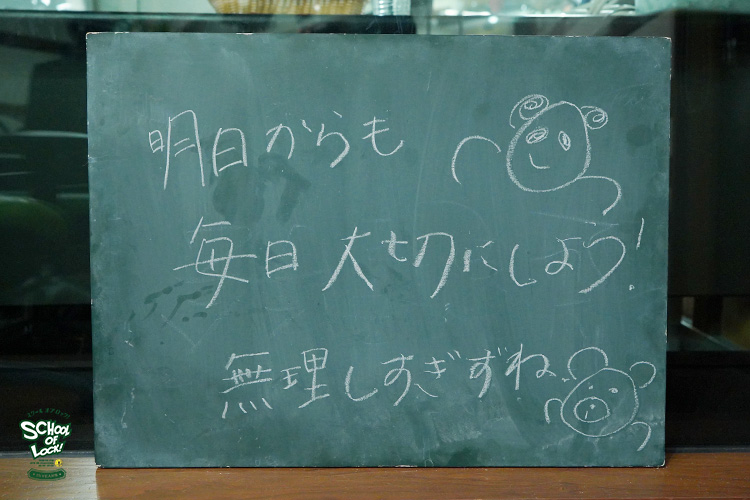 明日からも
毎日 大切にしよう!
無理しすぎずね
SCHOOL
OF
LOCK!